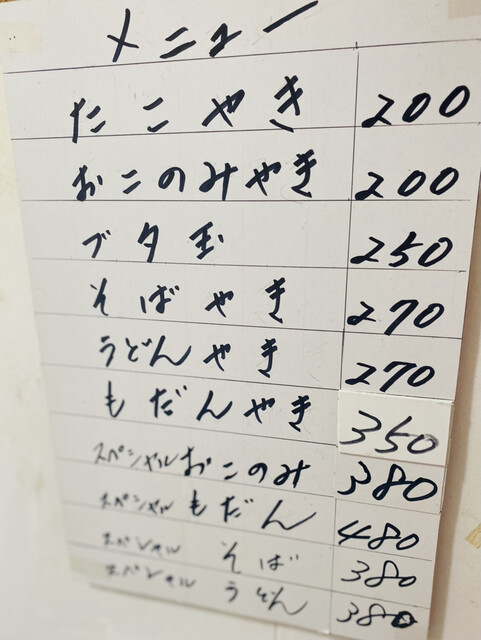 メニュー
たこやき 200
おこのみやき 200
ブタ玉 250
そばやき 270
うどんやき 270
もだんやき 350
スペシャルおこのみ 380
スペシャルもだん 480
スペシャルそば 380
スペシャルうどん 380